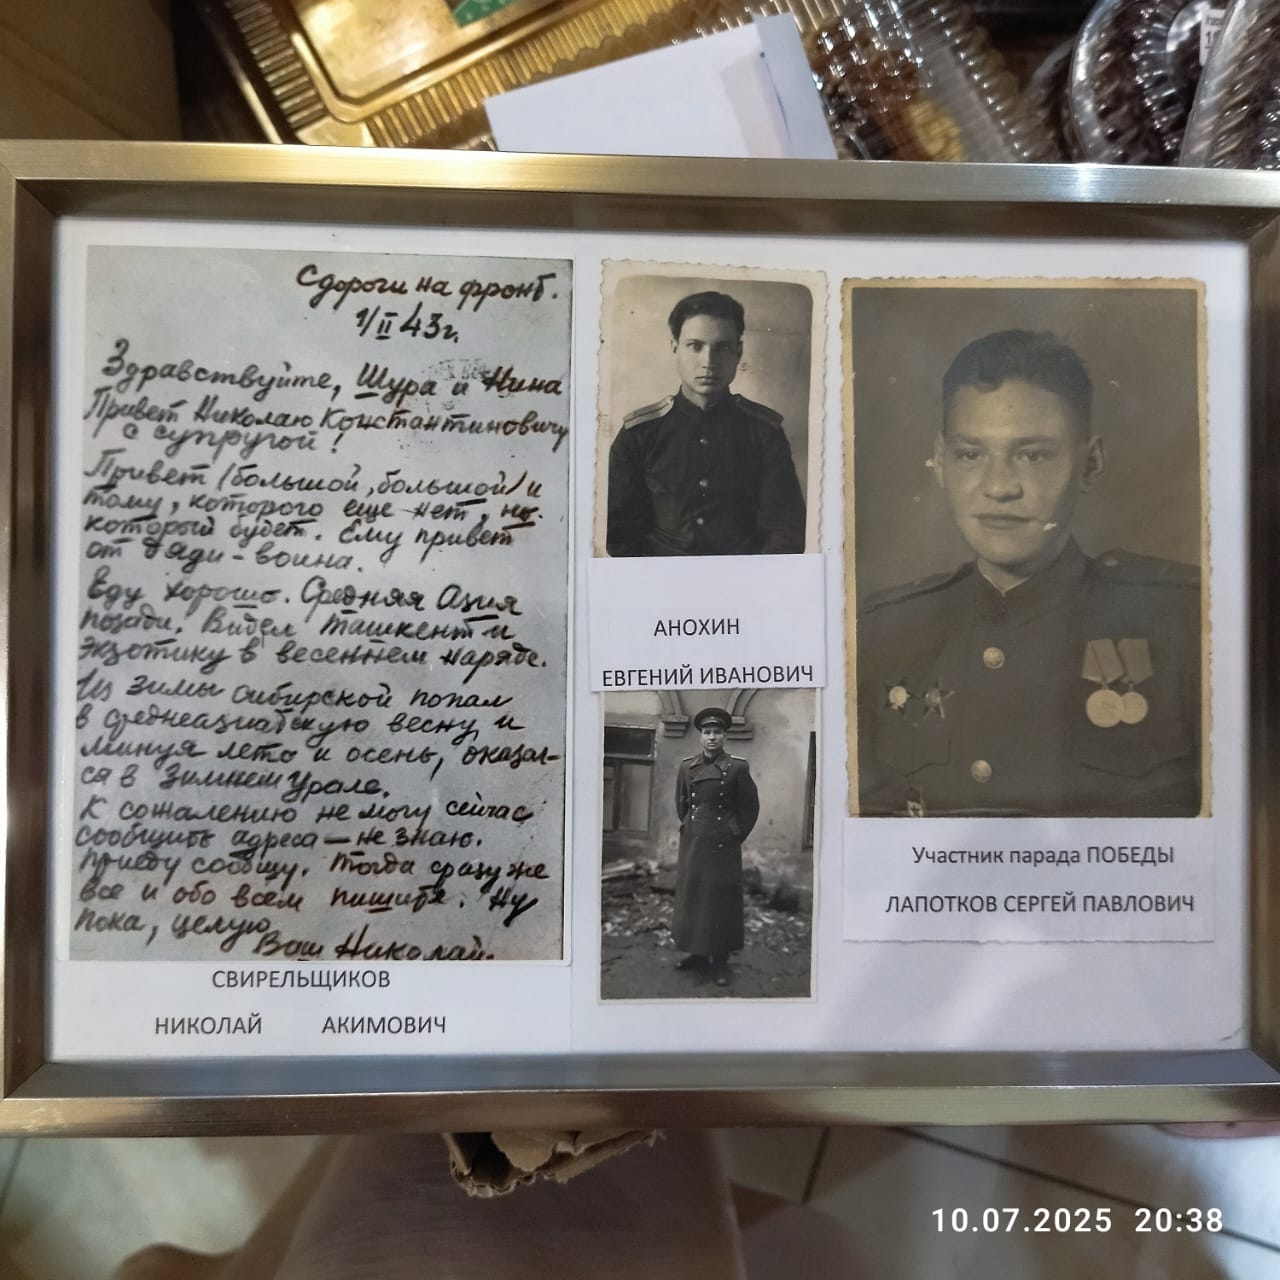 С дороги на фронт.
1/II 43г.
Здравствуйте, Шура и Нина
Привет Николаю Константиновичу
с супругой!
Привет (большой, большой) и
тому, которого еще нет, но
который будет. Ему привет
от дяди - воина.
Еду хорошо. Средняя Азия
позади. Видел Ташкент и
экзотику в весеннем наряде.
Из зимы сибирской попал
в среднеазиатскую весну, и
минуя лето и осень, оказал-
ся в зимнем Урале.
К сожалению не могу сейчас
сообщить адреса — не знаю.
Приеду сообщу. Тогда сразу же
все и обо всем пишите. Ну
пока, целую
Ваш Николай.
СВИРЕЛЬЩИКОВ
НИКОЛАЙ АКИМОВИЧ
АНОХИН
ЕВГЕНИЙ ИВАНОВИЧ
Участник парада ПОБЕДЫ
ЛАПОТКОВ СЕРГЕЙ ПАВЛОВИЧ
10.07.2025 20:38